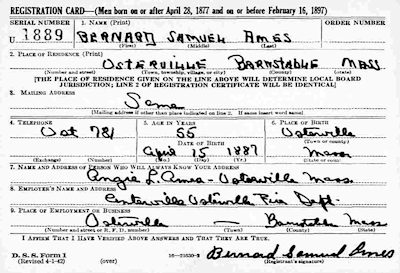 REGISTRATION CARD—(Men born on or after April 28, 1877 and on or before February 16, 1897)
SERIAL NUMBER 1. NAME (Print) ORDER NUMBER
U 1889 BERNARD SAMUEL AMES
(First) (Middle) (Last)
2. PLACE OF RESIDENCE (Print)
OSTERVILLE BARNSTABLE MASS
(Number and street) (Town, township, village, or city) (County) (State)
[THE PLACE OF RESIDENCE GIVEN ON THE LINE ABOVE WILL DETERMINE LOCAL BOARD
JURISDICTION; LINE 2 OF REGISTRATION CERTIFICATE WILL BE IDENTICAL]
3. MAILING ADDRESS
Same
(Mailing address if other than place indicated on line 2. If same insert word same)
4. TELEPHONE 5. AGE IN YEARS 6. PLACE OF BIRTH
Ost 781 55 Osterville
DATE OF BIRTH (Town or county)
April 15 1887 Mass
(Exchange) (Number) (Mo.) (Day) (Yr.) (State or country)
7. NAME AND ADDRESS OF PERSON WHO WILL ALWAYS KNOW YOUR ADDRESS
Angie L. Ames - Osterville Mass.
8. EMPLOYER'S NAME AND ADDRESS
Centerville Osterville Fire Dept.
9. PLACE OF EMPLOYMENT OR BUSINESS
Osterville — Barnstable Mass
(Number and street or R. F. D. number) (Town) (County) (State)
I AFFIRM THAT I HAVE VERIFIED ABOVE ANSWERS AND THAT THEY ARE TRUE.
D. S. S. Form 1
(Revised 4-1-42) (over) Bernard Samuel Ames
(Registrant's signature)